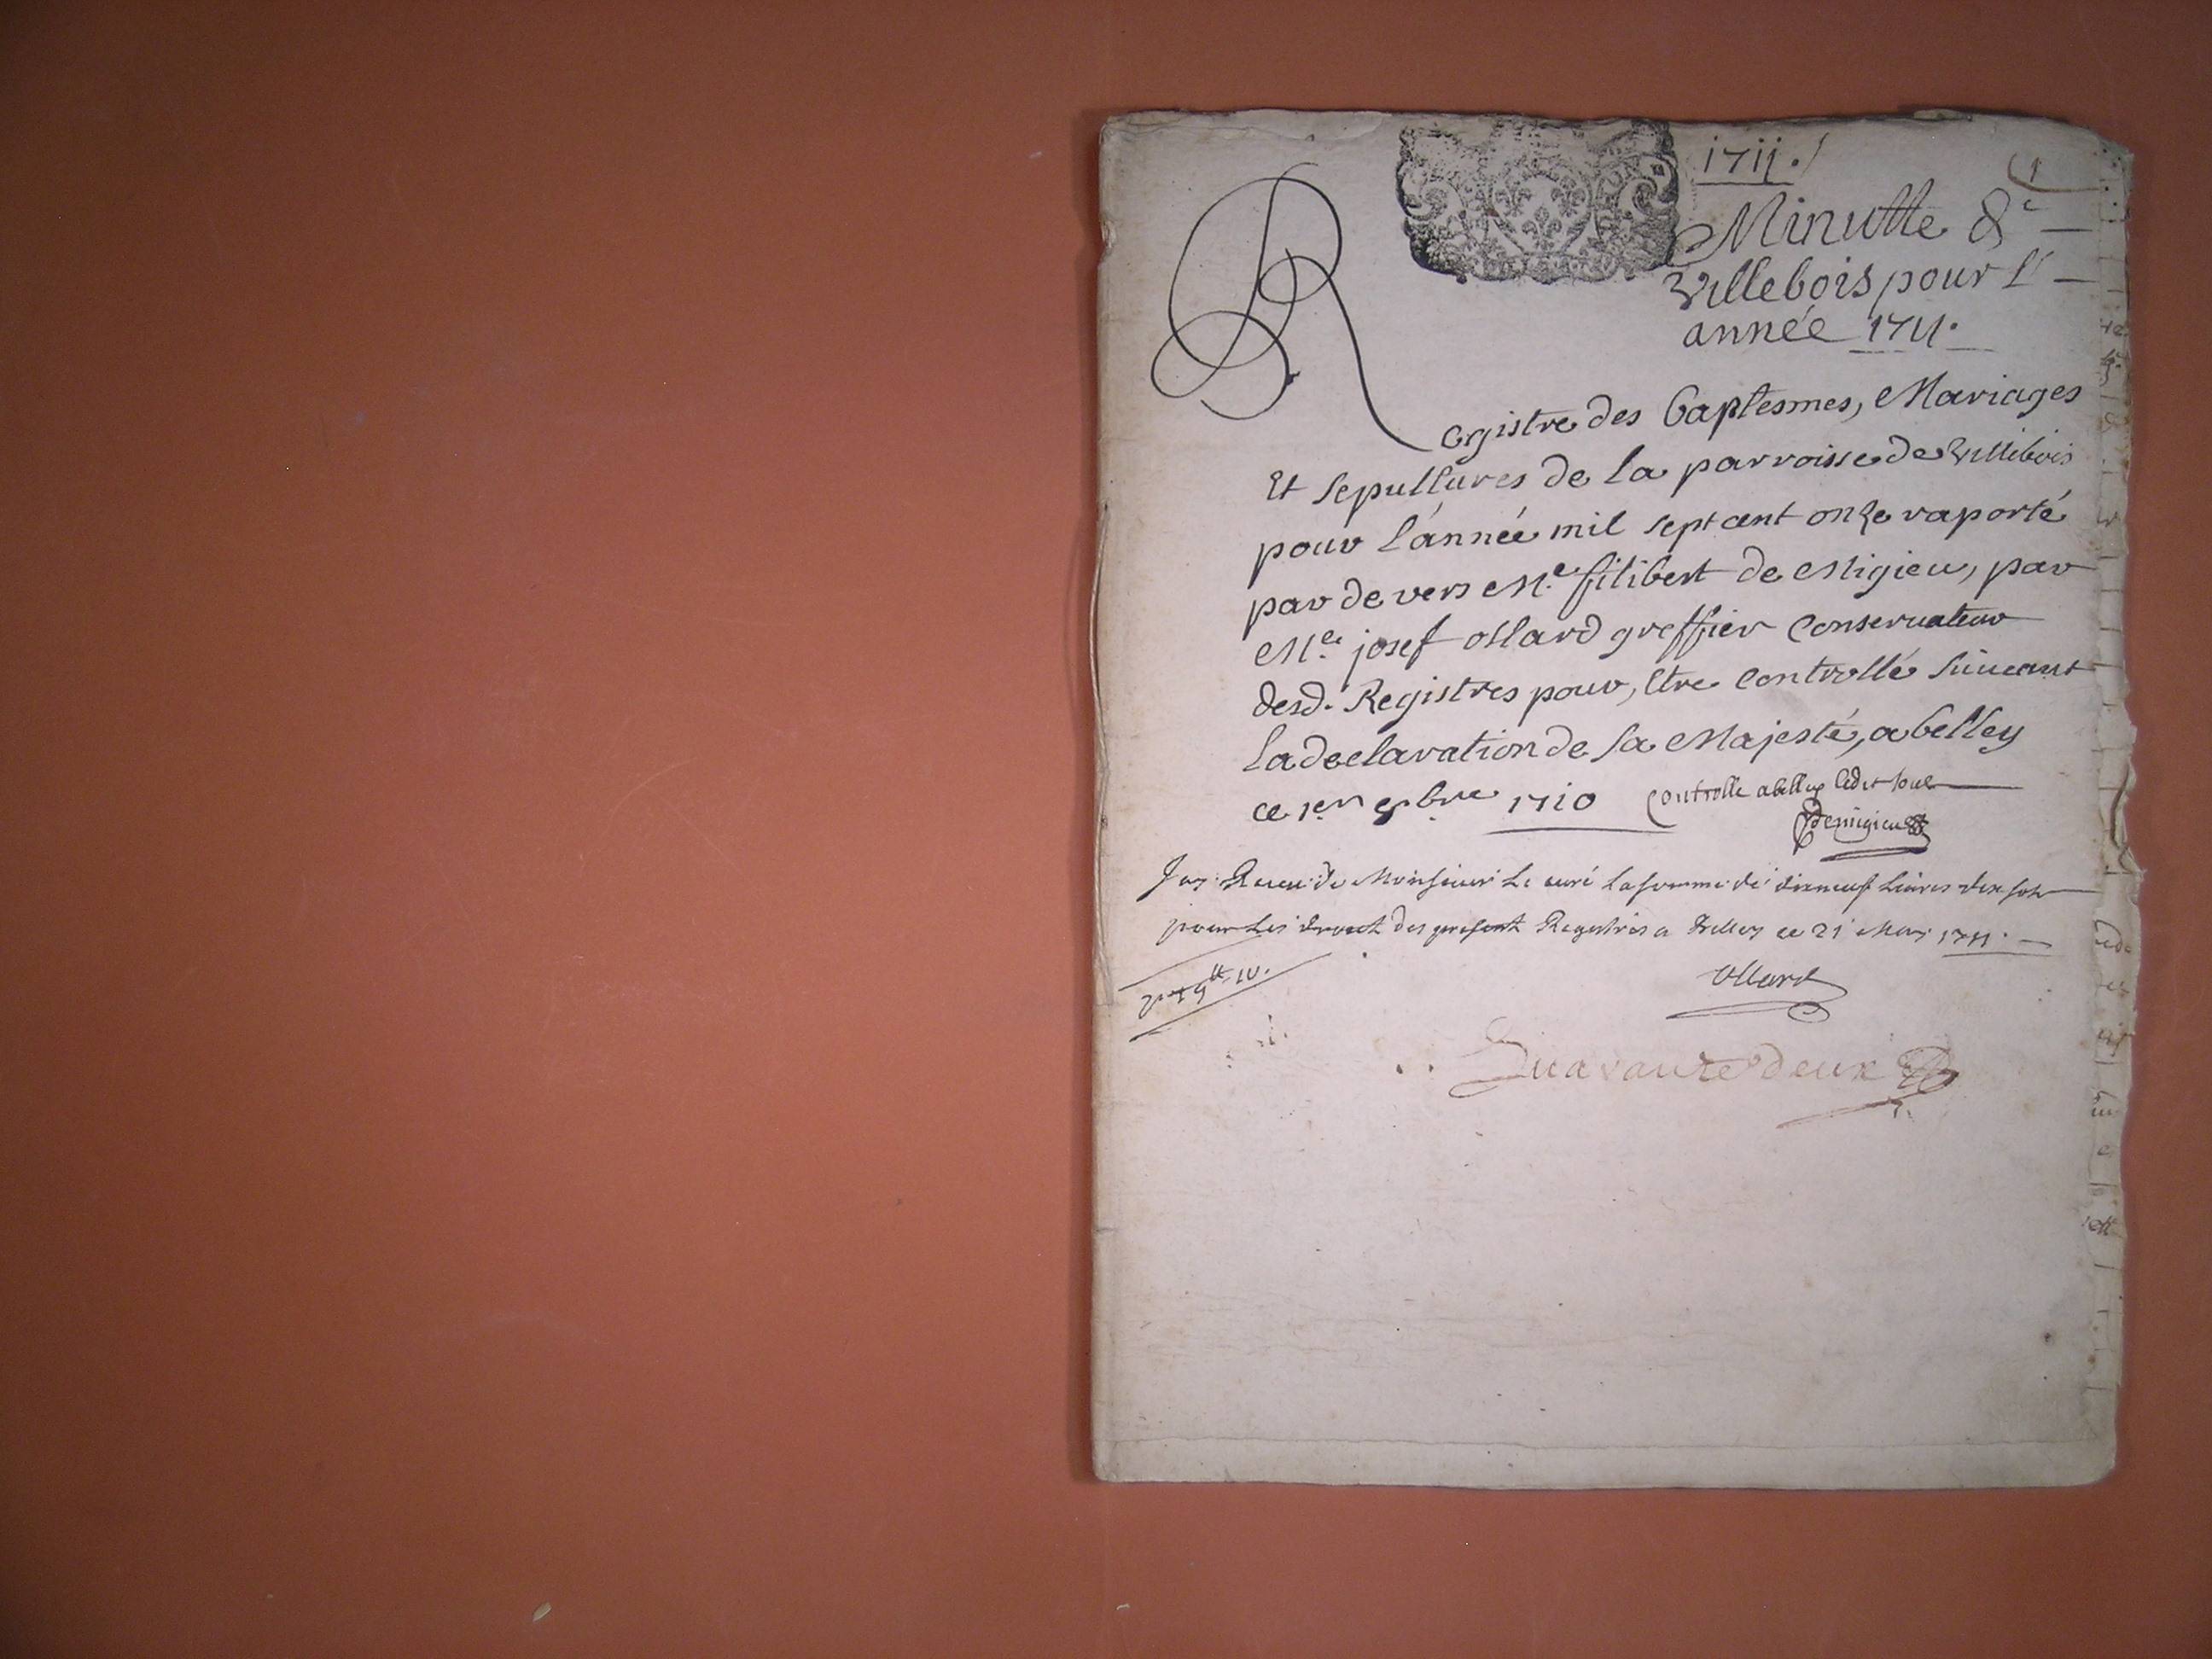 1711.
1
Minutte de
Villebois pour l'
année 1711.
Registre des baptesmes, Mariages
Et sepultures de la parroisse de Villebois
pour l'année mil sept cent onze raporté
par devers Me. filibert de Migieu, par
Me. josef ollard greffier Conservateur
desd. Registres pour, Etre Controllé suivant
la declaration de sa Majesté, a belley
ce 1er 1710
Controlle a belley ledit jour
Demigieu
Jay Receu de Monsieur le curé la somme de dixneuf livres dix sols
pour les droits des present Registres a Belley ce 21 1711.
Ollard
Quarante deux